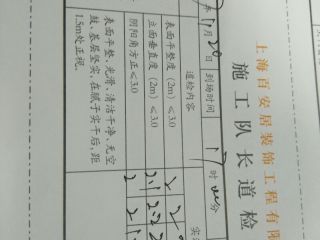 上海百安居装饰工程有限
施工队长道检
年 11月20日 到场时间 17时 分
道检内容
表面平整度 (2m) ≤3.0
立面垂直度 (2m) ≤3.0
阴阳角方正≤3.0
表面平整、光滑、清洁干净、无空
鼓、基层坚实，在腻子实干后，距
1.5m处正视。